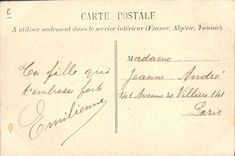 E
CARTE POSTALE
A utiliser seulement dans le service intérieur (France, Algérie, Tunisie)
Ta fille qui
t'embrasse fort
Emilienne
Madame
Jeanne André
141 Avenue de Villiers 141
Paris